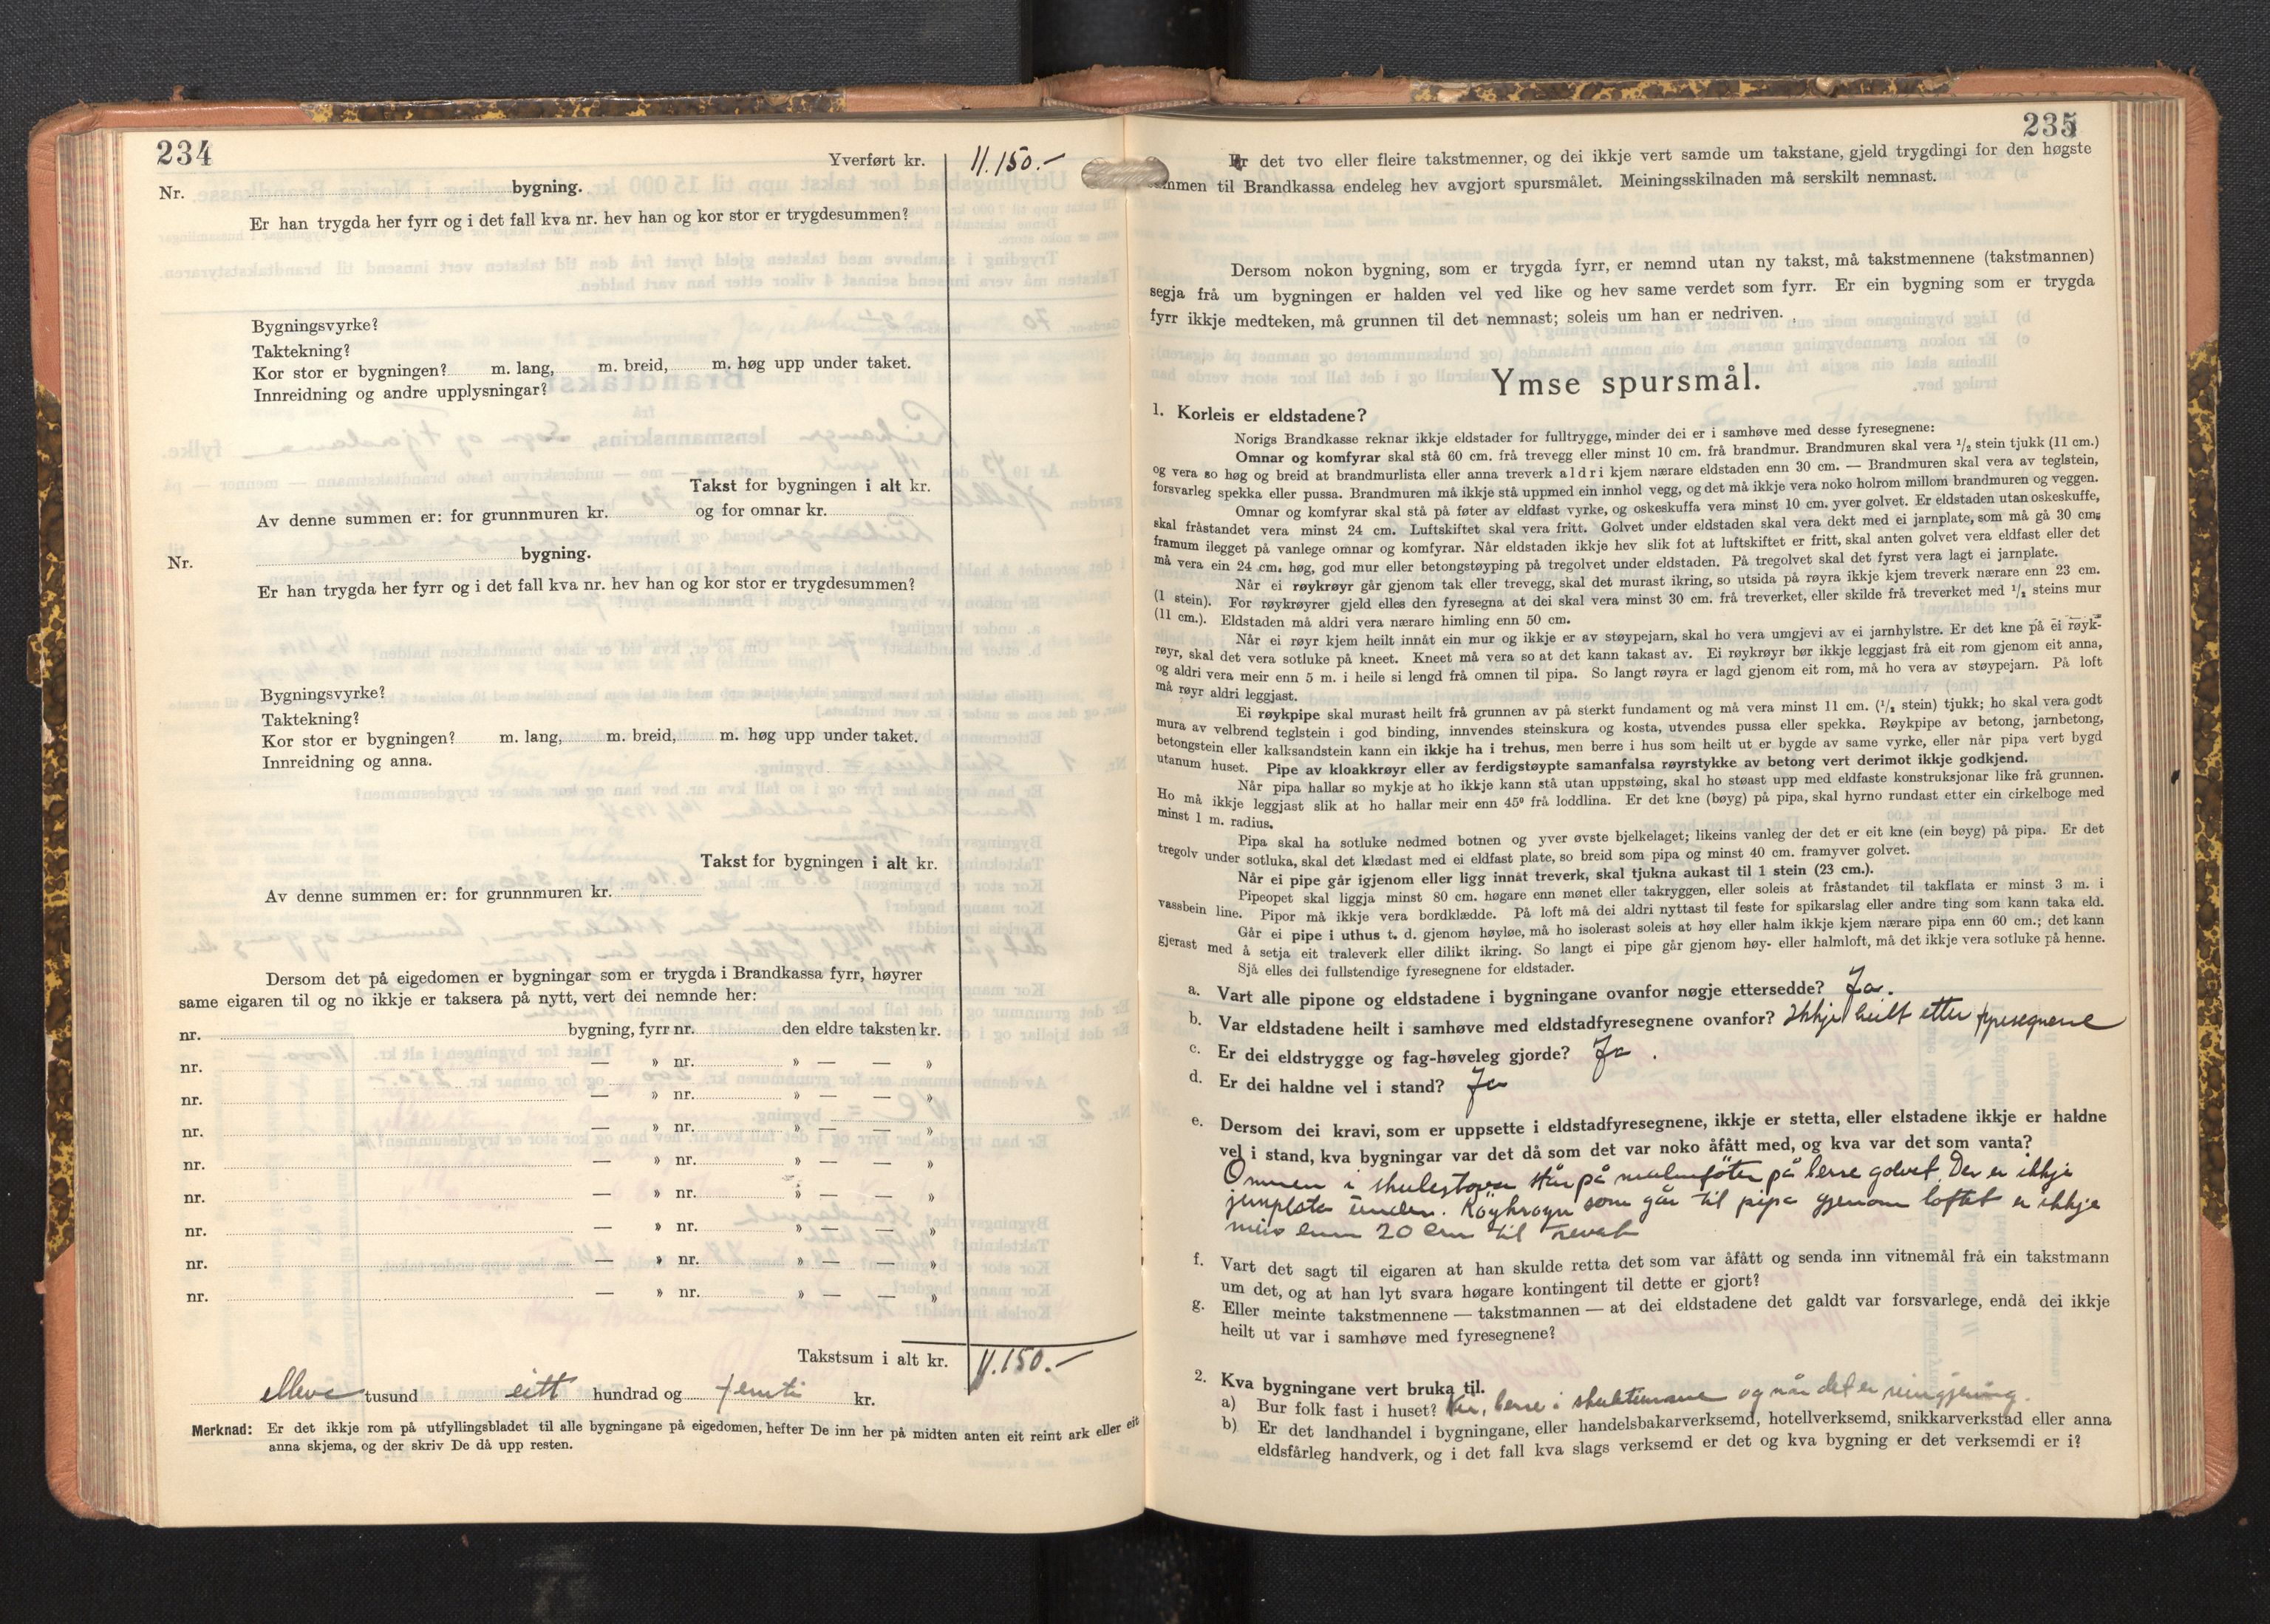 234
Yverført kr. 11.150.-
Nr. bygning.
Er han trygda her fyrr og i det fall kva nr. hev han og kor stor er trygdesummen?
Bygningsvyrke?
Taktekning?
Kor stor er bygningen? m. lang, m. breid, m. høg upp under taket.
Innreidning og andre upplysningar?
Takst for bygningen i alt kr.
Av denne summen er: for grunnmuren kr. og for omnar kr.
Nr. bygning.
Er han trygda her fyrr og i det fall kva nr. hev han og kor stor er trygdesummen?
Bygningsvyrke?
Taktekning?
Kor stor er bygningen? m. lang, m. breid, m. høg upp under taket.
Innreidning og anna.
Takst for bygningen i alt kr.
Av denne summen er: for grunnmuren kr.
Dersom det på eigedomen er bygningar som er trygda i Brandkassa fyrr, høyrer
same eigaren til og no ikkje er taksera på nytt, vert dei nemnde her:
nr. bygning, fyrr nr. den eldre taksten kr.
nr. — » nr. » — — »
nr. — » nr. » — — »
nr. — » nr. » — — »
nr. — » nr. » — — »
nr. — » nr. » — — »
nr. — » nr. » — — »
nr. — » nr. » — — »
nr. — » nr. » — — »
Takstsum i alt kr. 11.150.-
elleve tusund eitt hundrad og femti kr.
Merknad: Er det ikkje rom på utfyllingsbladet til alle bygningane på eigedomen, hefter De inn her på midten anten eit reint ark eller eit
anna skjema, og der skriv De då upp resten.
235
Er det tvo eller fleire takstmenner, og dei ikkje vert samde um takstane, gjeld trygdingi for den høgste
summen til Brandkassa endeleg hev avgjort spursmålet. Meiningsskilnaden må serskilt nemnast.
Dersom nokon bygning, som er trygda fyrr, er nemnd utan ny takst, må takstmennene (takstmannen)
segja frå um bygningen er halden vel ved like og hev same verdet som fyrr. Er ein bygning som er trygda
fyrr ikkje medteken, må grunnen til det nemnast; soleis um han er nedriven.
Ymse spursmål.
1. Korleis er eldstadene?
Norigs Brandkasse reknar ikkje eldstader for fulltrygge, minder dei er i samhøve med desse fyresegnene:
Omnar og komfyrar skal stå 60 cm. frå trevegg eller minst 10 cm. frå brandmur. Brandmuren skal vera 1/2 stein tjukk (11 cm.)
og vera so høg og breid at brandmurlista eller anna treverk aldri kjem nærare eldstaden enn 30 cm. — Brandmuren skal vera av teglstein,
forsvarleg spekka eller pussa. Brandmuren må ikkje stå uppmed ein innhol vegg, og det må ikkje vera noko holrom millom brandmuren og veggen.
Omnar og komfyrar skal stå på føter av eldfast vyrke, og oskeskuffa vera minst 10 cm. yver golvet. Er eldstaden utan oskeskuffe,
skal fråstandet vera minst 24 cm. Luftskiftet skal vera fritt. Golvet under eldstaden skal vera dekt med ei jarnplate, som må gå 30 cm.
framum ilegget på vanlege omnar og komfyrar. Når eldstaden ikkje hev slik fot at luftskiftet er fritt, skal anten golvet vera eldfast eller det
må vera ein 24 cm. høg, god mur eller betongstøyping på tregolvet under eldstaden. På tregolvet skal det fyrst vera lagt ei jarnplate.
Når ei røykrøyr går gjenom tak eller trevegg, skal det murast ikring, so utsida på røyra ikkje kjem treverk nærare enn 23 cm.
(1 stein). For røykrøyrer gjeld elles den fyresegna at dei skal vera minst 30 cm. frå treverket, eller skilde frå treverket med 1/2 steins mur
(11 cm.). Eldstaden må aldri vera nærare himling enn 50 cm.
Når ei røyr kjem heilt innåt ein mur og ikkje er av støypejarn, skal ho vera umgjevi av ei jarnhylstre. Er det kne på ei røyk-
røyr, skal det vera sotluke på kneet. Kneet må vera so at det kann takast av. Ei røykrøyr bør ikkje leggjast frå eit rom gjenom eit anna,
og aldri vera meir enn 5 m. i heile si lengd frå omnen til pipa. So langt røyra er lagd gjenom eit rom, må ho vera av støypejarn. På loft
må røyr aldri leggjast.
Ei røykpipe skal murast heilt frå grunnen av på sterkt fundament og må vera minst 11 cm. (1/2 stein) tjukk; ho skal vera godt
mura av velbrend teglstein i god binding, innvendes steinskura og kosta, utvendes pussa eller spekka. Røykpipe av betong, jarnbetong,
betongstein eller kalksandstein kann ein ikkje ha i trehus, men berre i hus som heilt ut er bygde av same vyrke, eller når pipa vert bygd
utanum huset. Pipe av kloakkrøyr eller av ferdigstøypte samanfalsa røyrstykke av betong vert derimot ikkje godkjend.
Når pipa hallar so mykje at ho ikkje kann stå utan uppstøing, skal ho støast upp med eldfaste konstruksjonar like frå grunnen.
Ho må ikkje leggjast slik at ho hallar meir enn 45° frå loddlina. Er det kne (bøyg) på pipa, skal hyrno rundast etter ein cirkelboge med
minst 1 m. radius.
Pipa skal ha sotluke nedmed botnen og yver øvste bjelkelaget; likeins vanleg der det er eit kne (ein bøyg) på pipa. Er det
tregolv under sotluka, skal det klædast med ei eldfast plate, so breid som pipa og minst 40 cm. framyver golvet.
Når ei pipe går igjenom eller ligg innåt treverk, skal tjukna aukast til 1 stein (23 cm.).
Pipeopet skal liggja minst 80 cm. høgare enn mønet eller takryggen, eller soleis at fråstandet til takflata er minst 3 m. i
vassbein line. Pipor må ikkje vera bordklædde. På loft må dei aldri nyttast til feste for spikarslag eller andre ting som kann taka eld.
Går ei pipe i uthus t. d. gjenom høyløe, må ho isolerast soleis at høy eller halm ikkje kjem nærare pipa enn 60 cm.; det kann
gjerast med å setja eit traleverk eller dilikt ikring. So langt ei pipe går gjenom høy- eller halmloft, må det ikkje vera sotluke på henne.
Sjå elles dei fullstendige fyresegnene for eldstader.
a. Vart alle pipone og eldstadene i bygningane ovanfor nøgje ettersedde? Ja.
b. Var eldstadene heilt i samhøve med eldstadfyresegnene ovanfor? Ikkje heilt etter fyresegnene
c. Er dei eldstrygge og fag-høveleg gjorde? Ja.
d. Er dei haldne vel i stand? Ja
e. Dersom dei kravi, som er uppsette i eldstadfyresegnene, ikkje er stetta, eller elstadene ikkje er haldne
vel i stand, kva bygningar var det då som det var noko åfått med, og kva var det som vanta?
Omnen i skulestova står på malmføter på berre golvet. Der er ikkje
jernplata under. Røykrøyr som går til pipa gjenom loftet er ikkje
meir enn 20 cm til treverk
f. Vart det sagt til eigaren at han skulde retta det som var åfått og senda inn vitnemål frå ein takstmann
um det, og at han lyt svara høgare kontingent til dette er gjort?
g. Eller meinte takstmennene — takstmannen — at dei eldstadene det galdt var forsvarlege, endå dei ikkje
heilt ut var i samhøve med fyresegnene?
2. Kva bygningane vert bruka til.
a) Bur folk fast i huset? Nei, berre i skuletimane og når det er reingjering.
b) Er det landhandel i bygningane, eller handelsbakarverksemd, hotellverksemd, snikkarverkstad eller anna
eldsfårleg handverk, og i det fall kva slags verksemd er det og kva bygning er det verksemdi er i?